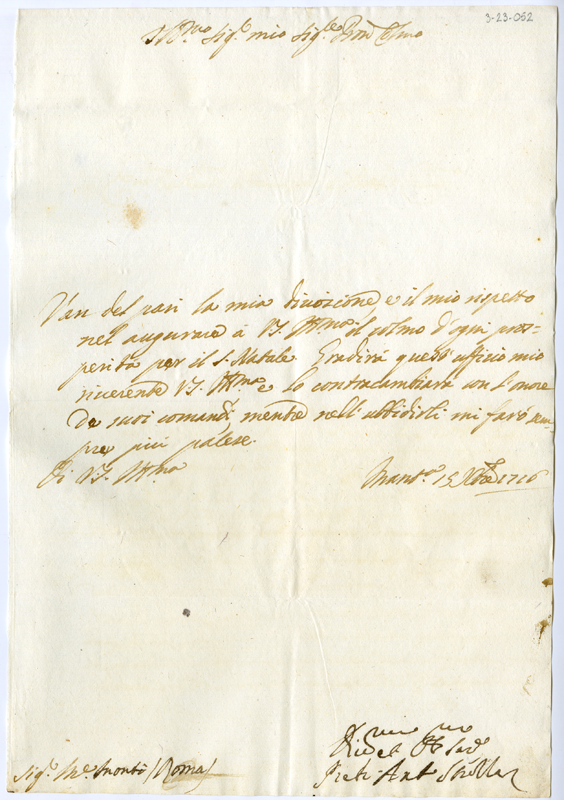 3-23-052
Ill.mo Sig.r mio Sig.re Pron Col.mo
Van del pari la mia divozione e il mio rispetto
nel augurare à V.S. Ill.ma il colmo d'ogni pros=
perità per il S. Natale. Gradirà quest'ufficio mio
riverente V.S. Ill.ma e lo contracambierà con l'onore
de suoi comandi, mentre nell'ubbidirli mi farò sem=
pre più palese.
Di V.S. Ill.ma
Mant.a 15 Xbre 1716
Sig.r Monti (Roma)
Dev.mo Ob Ser
Ant